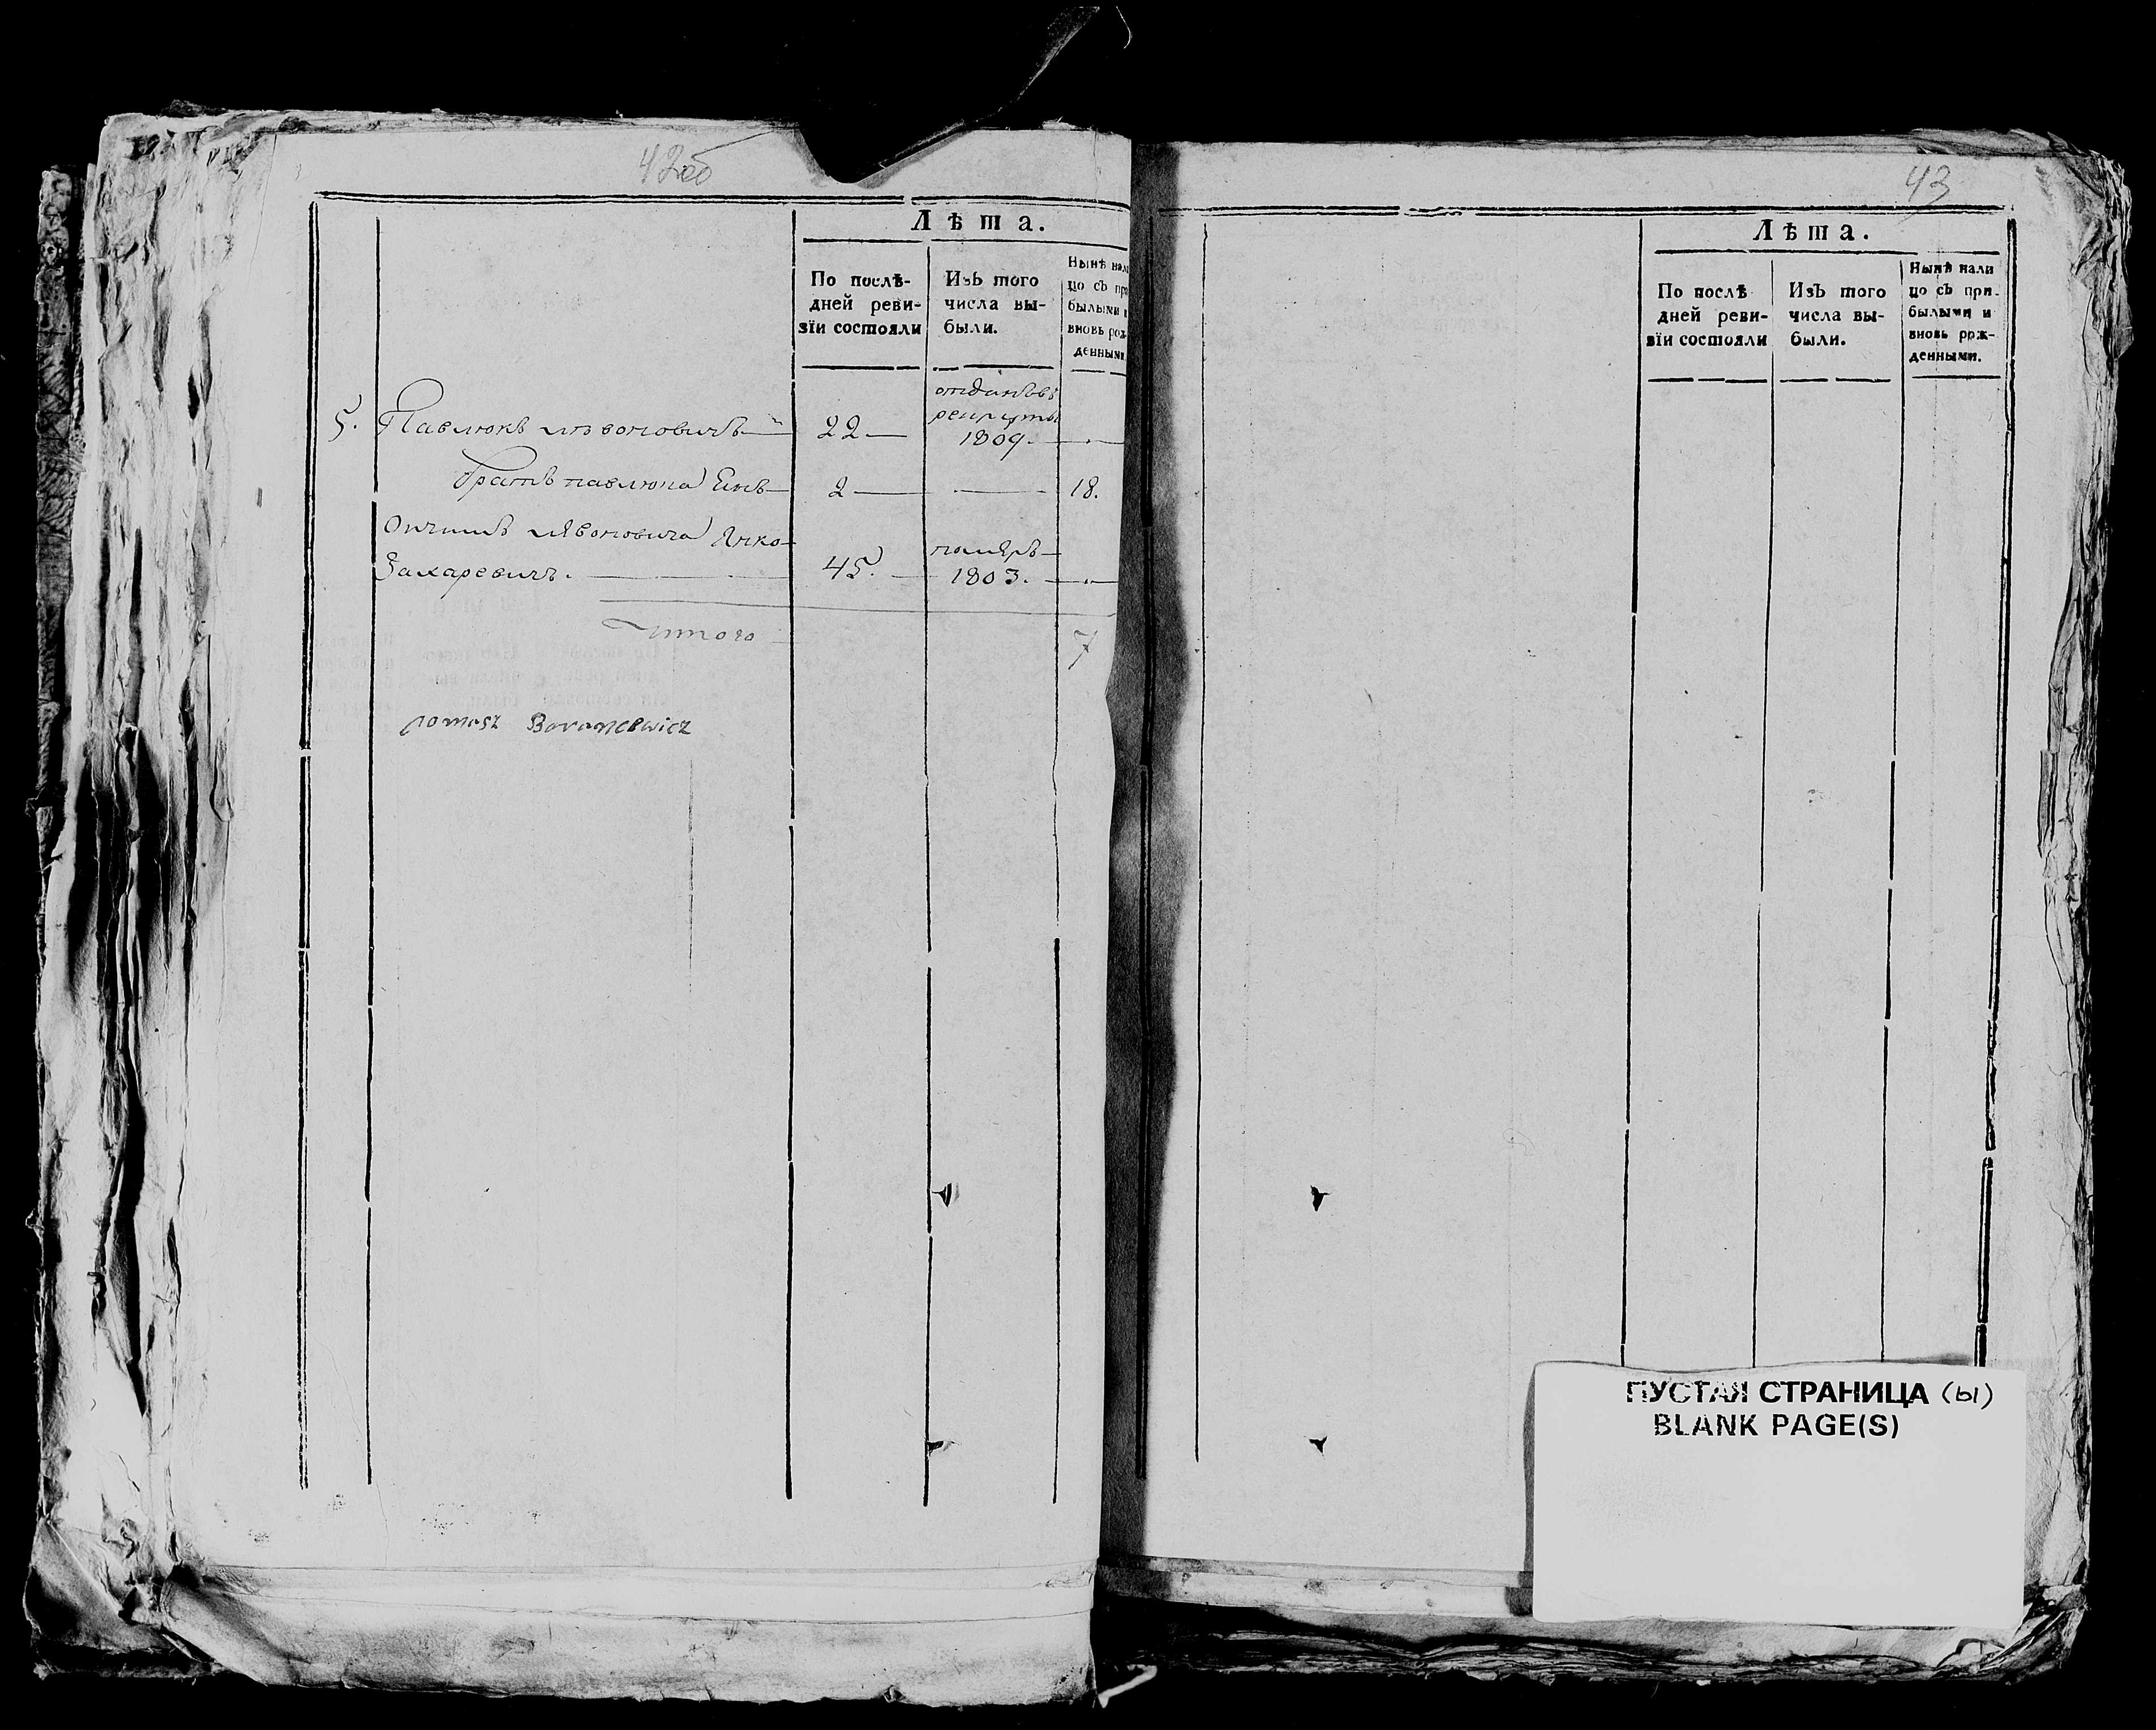 42об
Лѣта.
По послѣ-
дней реви-
зїи состояли
Изъ того
числа вы-
были.
Нынѣ нали
цо съ при
былыми и
вновь рож-
денными.
отданъ въ
рекруты
5. Павлюкъ Лявоновичъ — 22 — 1809. —
братъ Павлюка — 2 — — 18.
Отчимъ Лявоновича Янко
Захаревичъ. — 45. —
помѣръ
1803. —
Итого 7
Tomasz Borancewicz
43
Лѣта.
По послѣ
дней реви-
зїи состояли
Изъ того
числа вы-
были.
Нынѣ нали
цо съ при-
былыми и
вновь рож-
денными.
ПУСТАЯ СТРАНИЦА (ы)
BLANK PAGE(S)